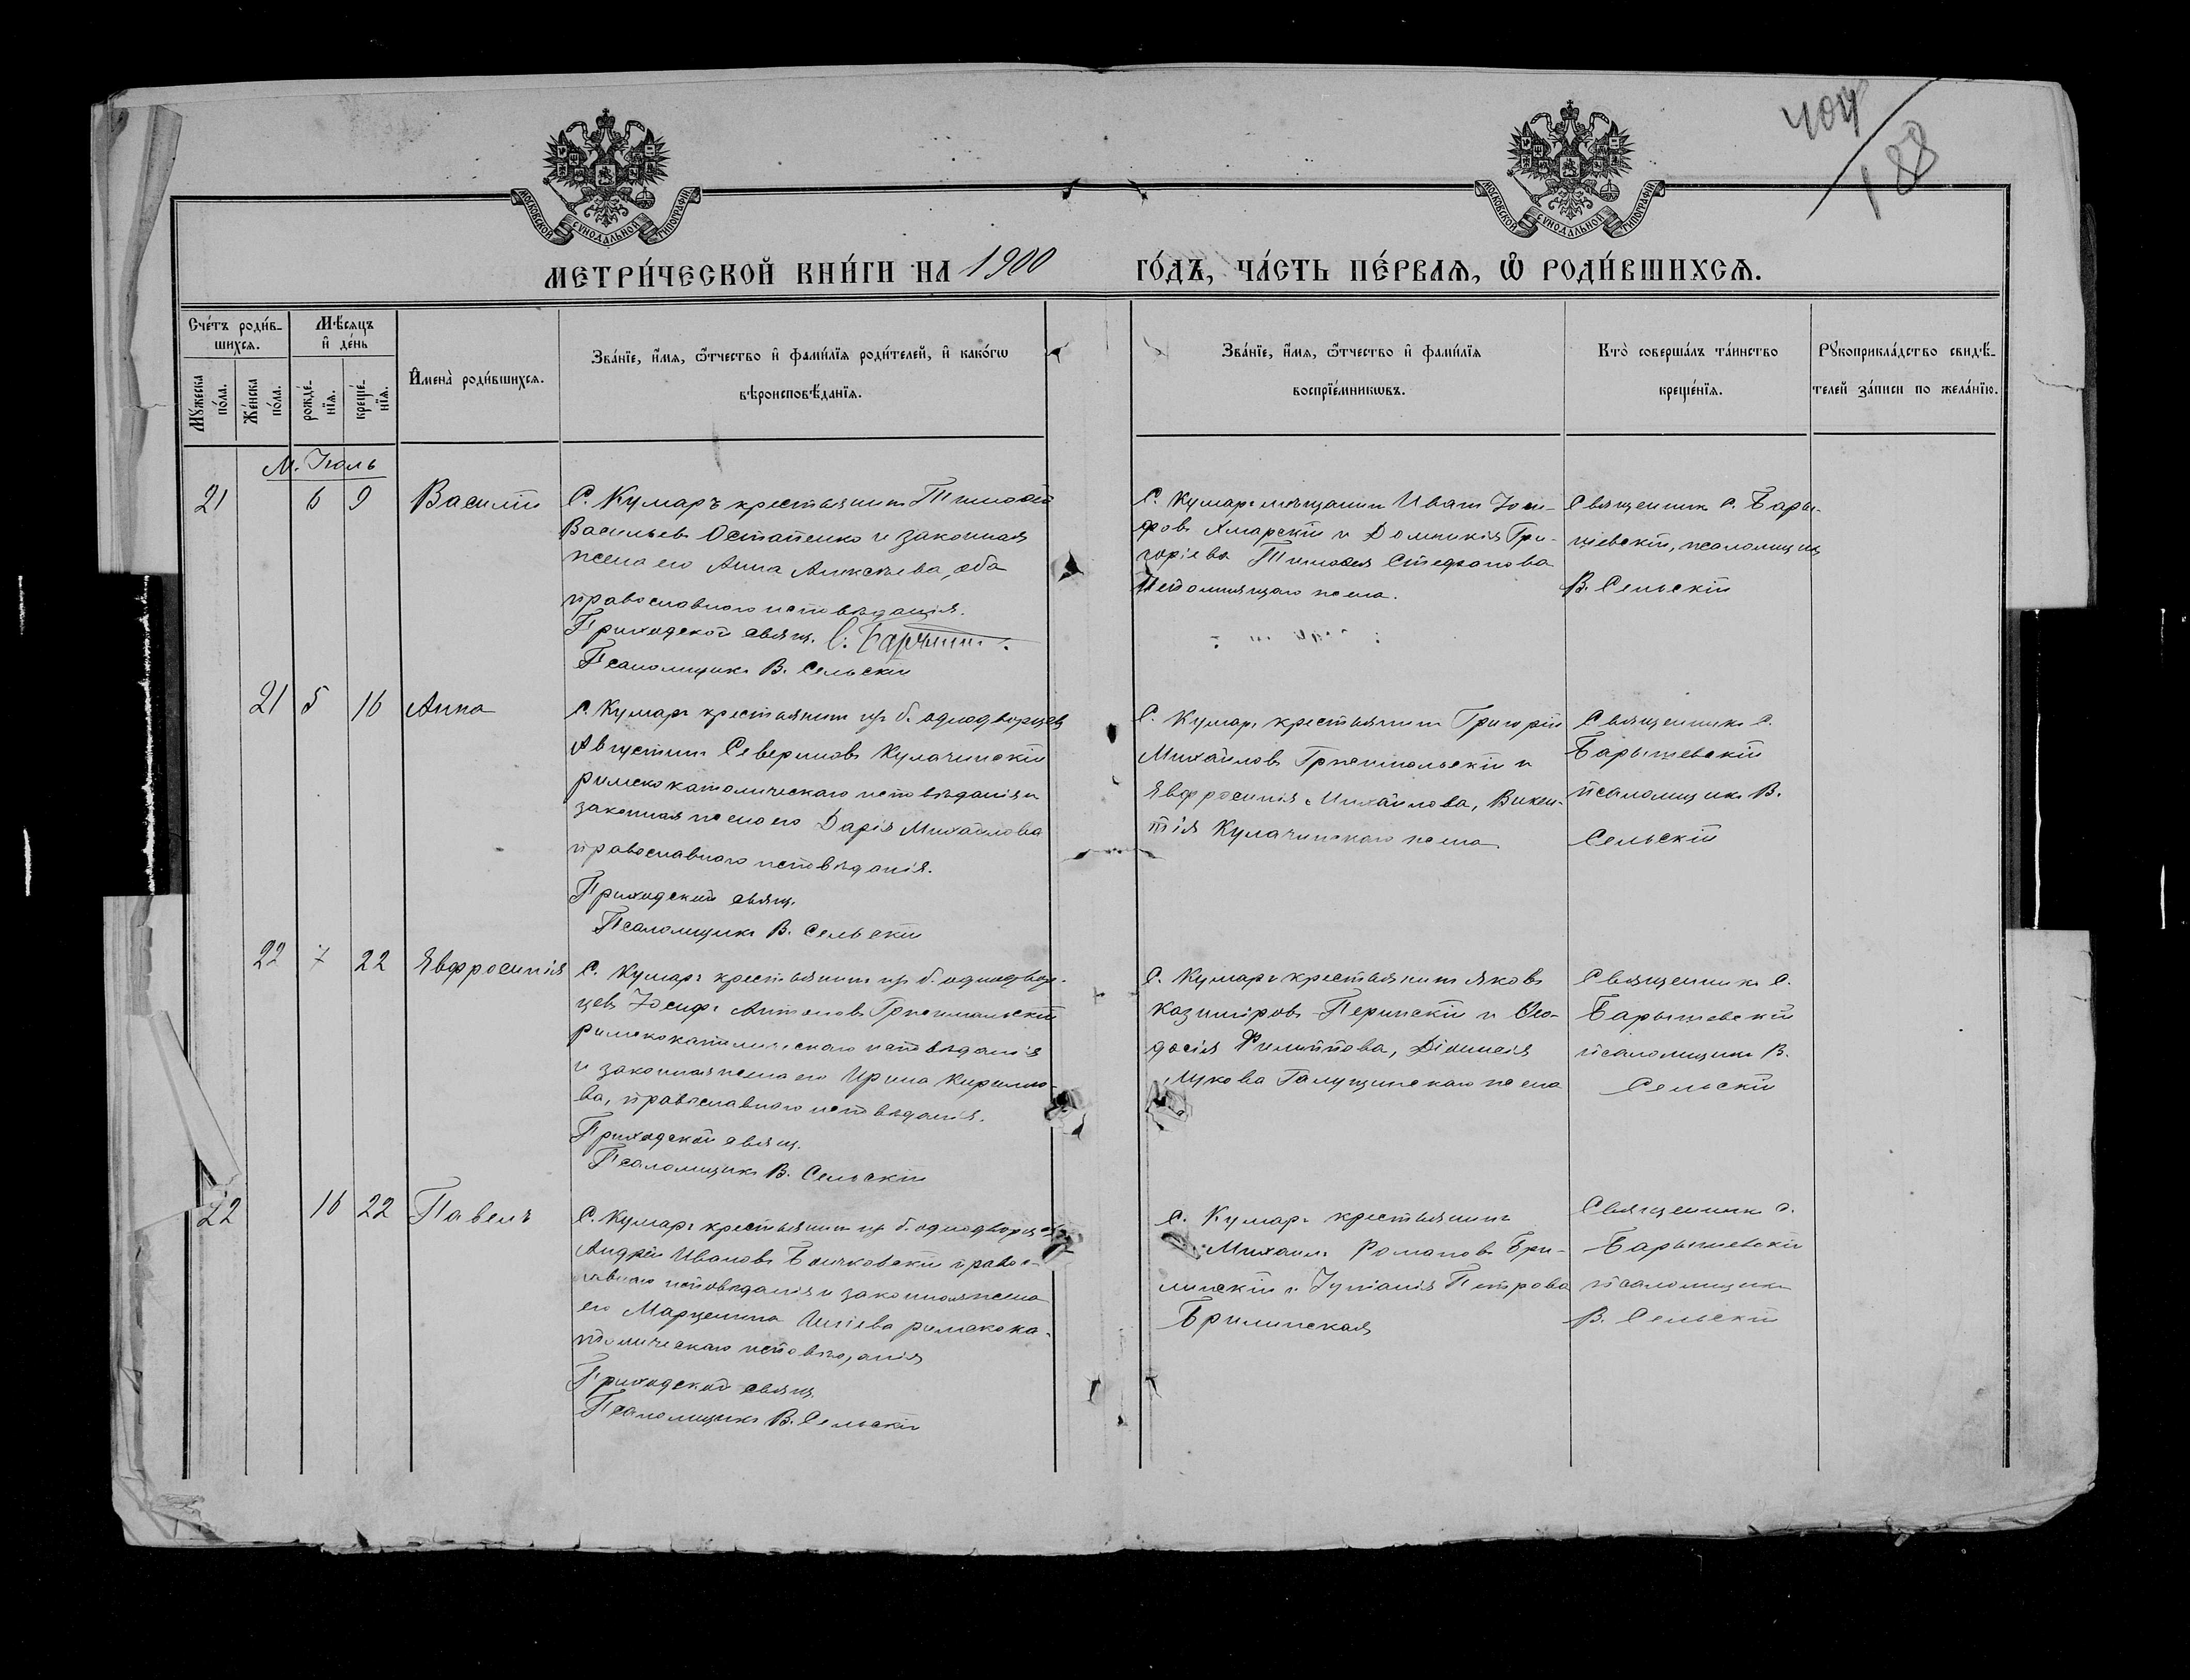 404
188
МОСКОВСКОЙ СѴНОДАЛЬНОЙ ТИПОГРАФІИ
МОСКОВСКОЙ СѴНОДАЛЬНОЙ ТИПОГРАФІИ
МЕТРИ́ЧЕСКОЙ КНИ́ГИ НА 1900 ГО́ДЪ, ЧА́СТЬ ПЕ́РВАѦ, Ѡ҆ РОДИ́ВШИХСѦ.
Сче́тъ роди́в-
шихсѧ.
Мꙋ́жеска по́ла.
Же́нска по́ла.
Мѣ́сѧцъ
и҆ де́нь
рожде́-
нїѧ.
креще́-
нїѧ.
И҆мена̀ роди́вшихсѧ.
Зва́нїе, и҆́мѧ, ѻ҆́тчество и҆ фами́лїѧ роди́телей, и҆ како́гѡ
вѣроисповѣ́данїѧ.
Зва́нїе, и҆́мѧ, ѻ҆́тчество и҆ фами́лїѧ
воспрїе́мникѡвъ.
Кто̀ соверша́лъ та́инство
креще́нїѧ.
Рꙋкоприкла́дство свидѣ́-
телей за́писи по жела́нїю.
М. Іюль
21 6 9 Василій
С. Кумаръ крестьянинъ Тимоѳей
Васильевъ Остапенко и законная
жена его Анна Алексѣева, оба
православнаго исповѣданія.
Приходской свящ. С.
Псаломщикъ В. Сельскій
С. Кумаръ мѣщанинъ Иванъ Іоси-
фовъ Хмарскій и Домникія Гри-
горіева Тимоѳея Стефанова
жена.
Священникъ С. Бары-
шевскій, псаломщикъ
В. Сельскій
21 5 16 Анна
С. Кумаръ крестьянинъ изъ б. однодворцевъ
Августинъ Севериновъ Кулачинскій
римскокатолическаго исповѣданія и
законная жена его Дарія Михайлова
православнаго исповѣданія.
Приходской свящ.
Псаломщикъ В. Сельскій
С. Кумаръ крестьянинъ Григорій
Михайловъ и
Явфросинія Михайлова, Викен-
тія Кулачинскаго жена
Священникъ С.
Барышевскій
псаломщикъ В.
Сельскій
22 7 22 Явфросинія
С. Кумаръ крестьянинъ изъ б. однодвор-
цевъ Іосифъ Антоновъ
римскокатолическаго исповѣданія
и законная жена его Ирина Кирилло-
ва, православнаго исповѣданія.
Приходской свящ.
Псаломщикъ В. Сельскій
С. Кумаръ крестьянинъ Яковъ
Казиміровъ Перинскій и Ѳео-
досія Филиппова, Діонисія
Лукова Галущинскаго жена
Священникъ С.
Барышевскій
псаломщикъ В.
Сельскій
22 16 22 Павелъ
С. Кумаръ крестьянинъ изъ б. однодворцевъ
Андрей Ивановъ Бочковскій правос-
лавнаго исповѣданія и законная жена
его Марцелина римскока-
толическаго исповѣданія
Приходской свящ.
Псаломщикъ В. Сельскій
С. Кумаръ крестьянинъ
Михаилъ Романовъ Бри-
линскій и Іуліанія Петрова
Брилинская
Священникъ С.
Барышевскій
псаломщикъ
В. Сельскій